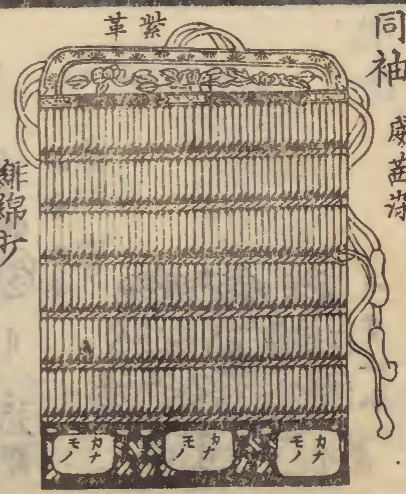 同袖
威茜染
紫革
緋綿打
カナモノ
カナモノ
カナモノ